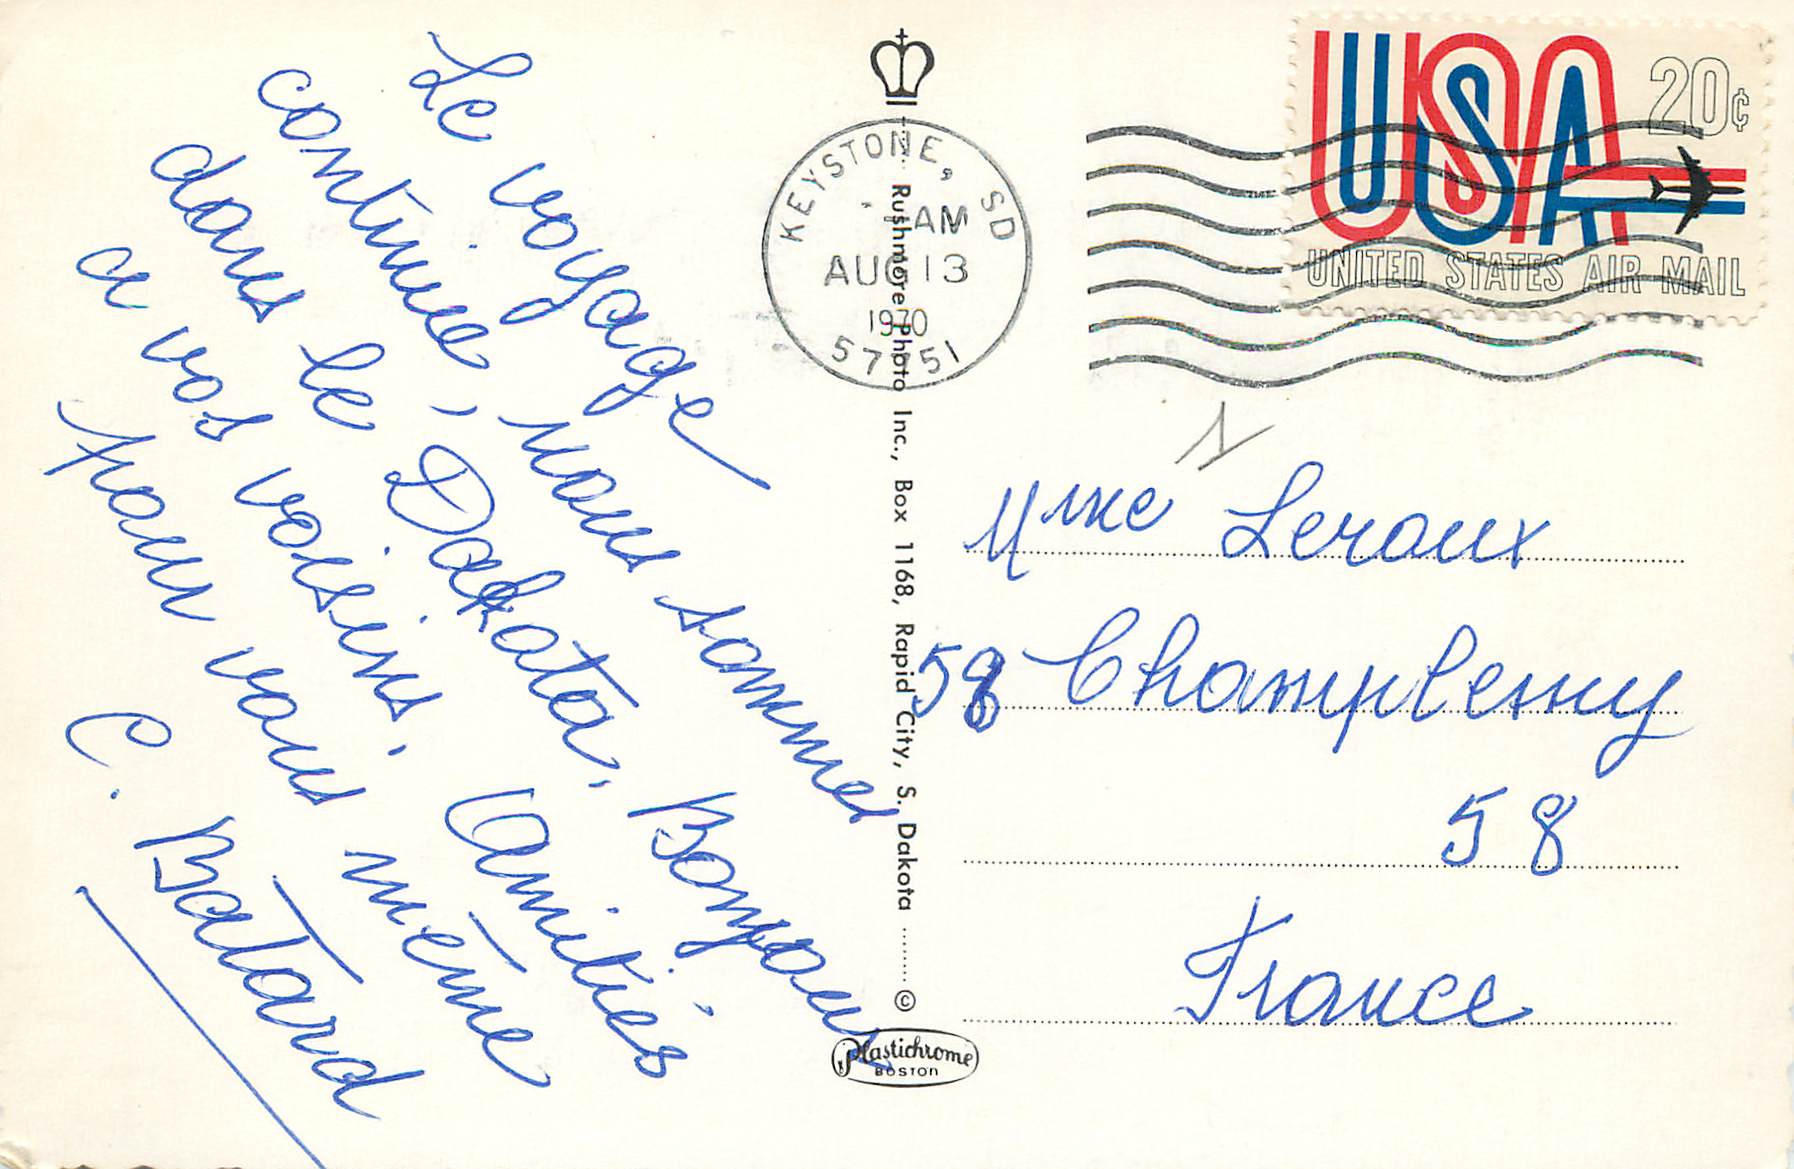 Le voyage
continue, nous sommes
dans le Dakota. Bonjour
a vos voisins. Amitiés
pour vous même
C. Batard
KEYSTONE, SD
AM
AUG 13
1970
57751
USA 20¢
UNITED STATES AIR MAIL
Rushmore Photo Inc., Box 1168, Rapid City, S. Dakota ©
Plastichrome
BOSTON
Mme Leroux
58 Champlemy
58
France